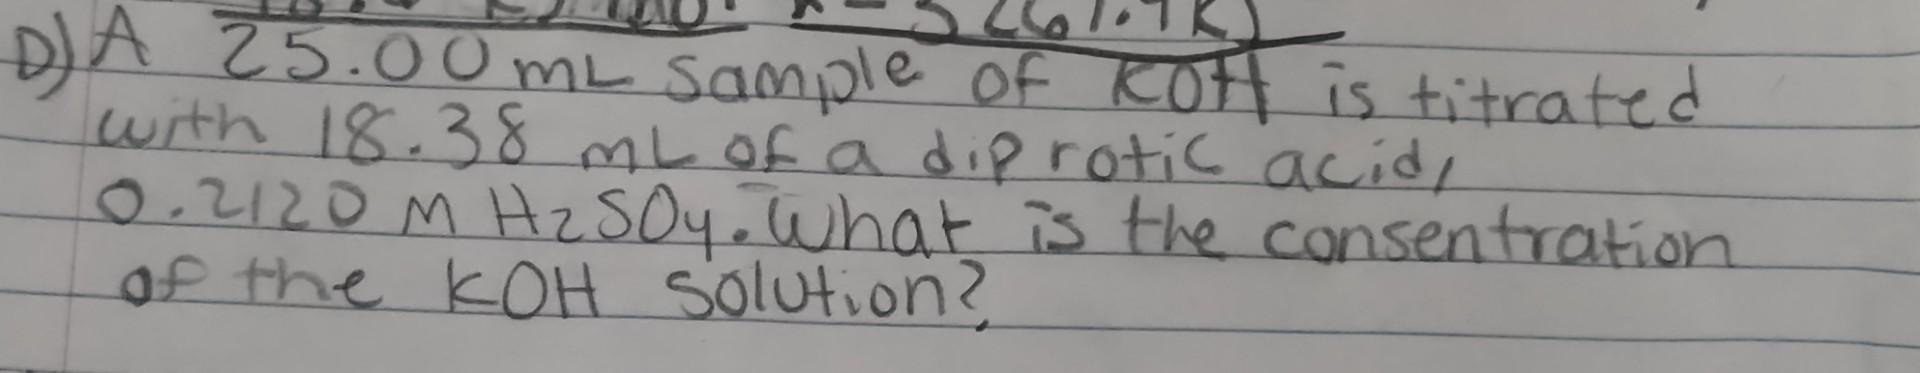 D) A 25.00 mL sample of KOH is titrated
with 18.38 mL of a diprotic acid,
0.2120 M H2SO4. What is the consentration
of the KOH solution?